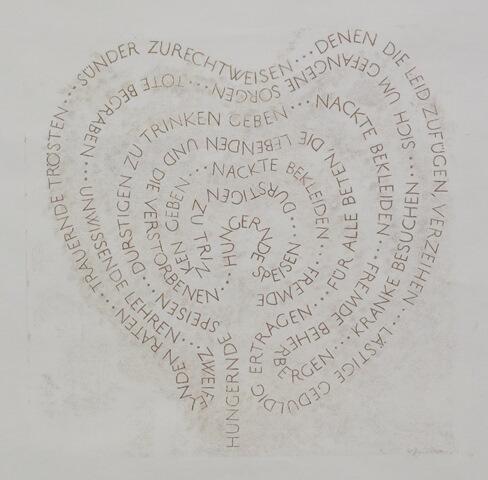 HUNGERNDE SPEISEN...
DURSTIGEN ZU TRINKEN GEBEN...
NACKTE BEKLEIDEN...
FREMDE
HUNGERNDE SPEISEN...
DURSTIGEN ZU TRINKEN GEBEN...
NACKTE BEKLEIDEN...
FREMDE BEHERBERGEN...
KRANKE BESUCHEN...
SICH UM GEFANGENE SORGEN...
TOTE BEGRABEN...
UNWISSENDE LEHREN...
ZWEIFELNDEN RATEN...
TRAUERNDE TRÖSTEN...
SÜNDER ZURECHTWEISEN...
DENEN DIE LEID ZUFÜGEN, VERZEIHEN...
LÄSTIGE GEDULDIG ERTRAGEN...
FÜR ALLE BETEN, DIE LEBENDEN UND DIE VERSTORBENEN